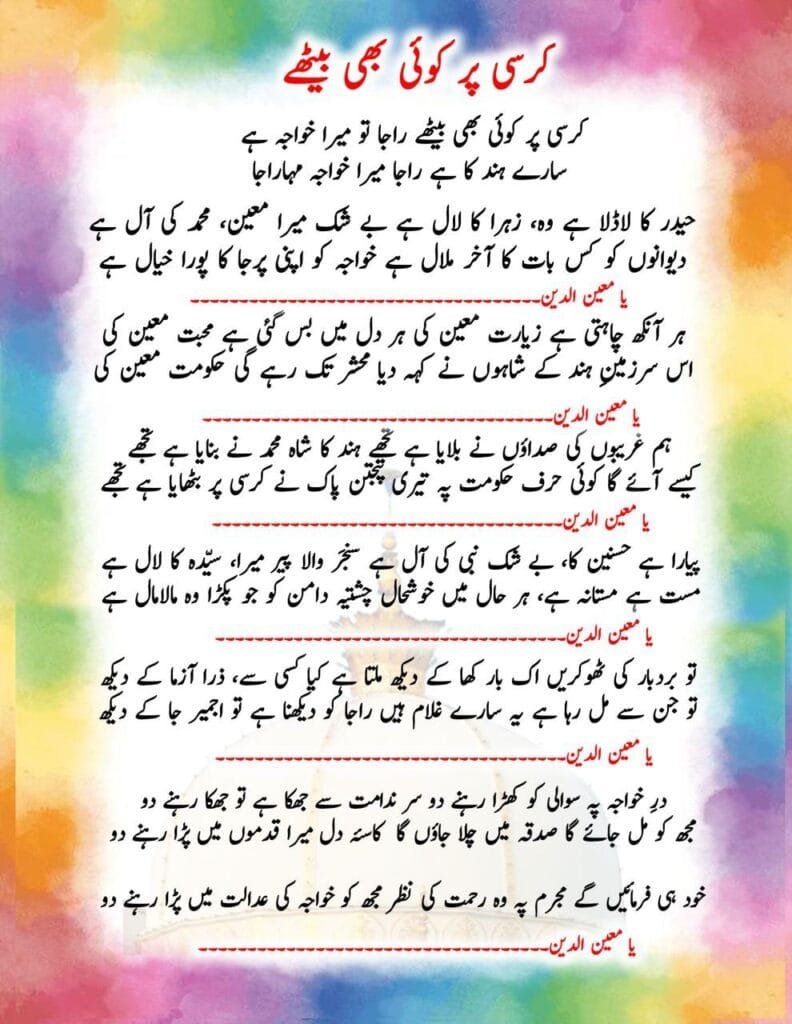 کرسی پر کوئی بھی بیٹھے
کرسی پر کوئی بھی بیٹھے راجا تو میرا خواجہ ہے
سارے ہند کا ہے راجا میرا خواجہ مہاراجا
حیدر کا لاڈلا ہے وہ، زہرا کا لال ہے بے شک میرا معین، محمد کی آل ہے
دیوانوں کو کس بات کا آخر ملال ہے خواجہ کو اپنی پرجا کا پورا خیال ہے
یا معین الدین------------------------------------
ہر آنکھ چاہتی ہے زیارت معین کی ہر دل میں بس گئی ہے محبت معین کی
اس سرزمینِ ہند کے شاہوں نے کہہ دیا محشر تک رہے گی حکومت معین کی
یا معین الدین------------------------------------
ہم غریبوں کی صداؤں نے بلایا ہے تجھے ہند کا شاہ محمد نے بنایا ہے تجھے
کیسے آئے گا کوئی حرف حکومت پہ تیری پنجتن پاک نے کرسی پر بٹھایا ہے تجھے
یا معین الدین------------------------------------
پیارا ہے حسنین کا، بے شک نبی کی آل ہے سنجَر والا پیر میرا، سیّدہ کا لال ہے
مست ہے مستانہ ہے، ہر حال میں خوشحال چشتیہ دامن کو جو پکڑا وہ مالامال ہے
یا معین الدین------------------------------------
تو بردبار کی ٹھوکریں اک بار کھا کے دیکھ ملتا ہے کیا کسی سے، ذرا آزما کے دیکھ
تو جن سے مل رہا ہے یہ سارے غلام ہیں راجا کو دیکھنا ہے تو اجمیر جا کے دیکھ
یا معین الدین------------------------------------
درِ خواجہ پہ سوالی کو کھڑا رہنے دو سر ندامت سے جھکا ہے تو جھکا رہنے دو
مجھ کو مل جائے گا صدقہ میں چلا جاؤں گا کاسۂ دل میرا قدموں میں پڑا رہنے دو
خود ہی فرمائیں گے مجرم پہ وہ رحمت کی نظر مجھ کو خواجہ کی عدالت میں پڑا رہنے دو
یا معین الدین------------------------------------